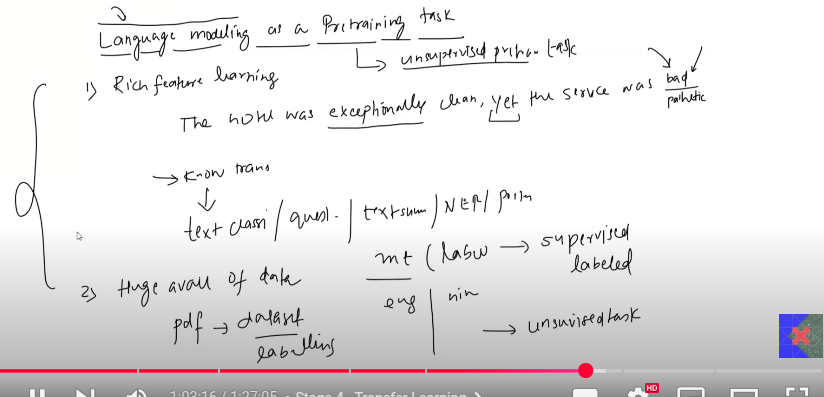 Language modeling as a Pretraining task
unsupervised task
1) Rich feature learning
The hotel was exceptionally clean, yet the service was bad
pathetic
→ know trans
text classi / quest. / textsum / NER /
2) Huge avail of data
mt ( → supervised
labeled
eng | hin
pdf → dataset
labelling
→ unsuvisedtask
HD
1:03:16 / 1:27:05 • Stage 4 - Transfer Learning >